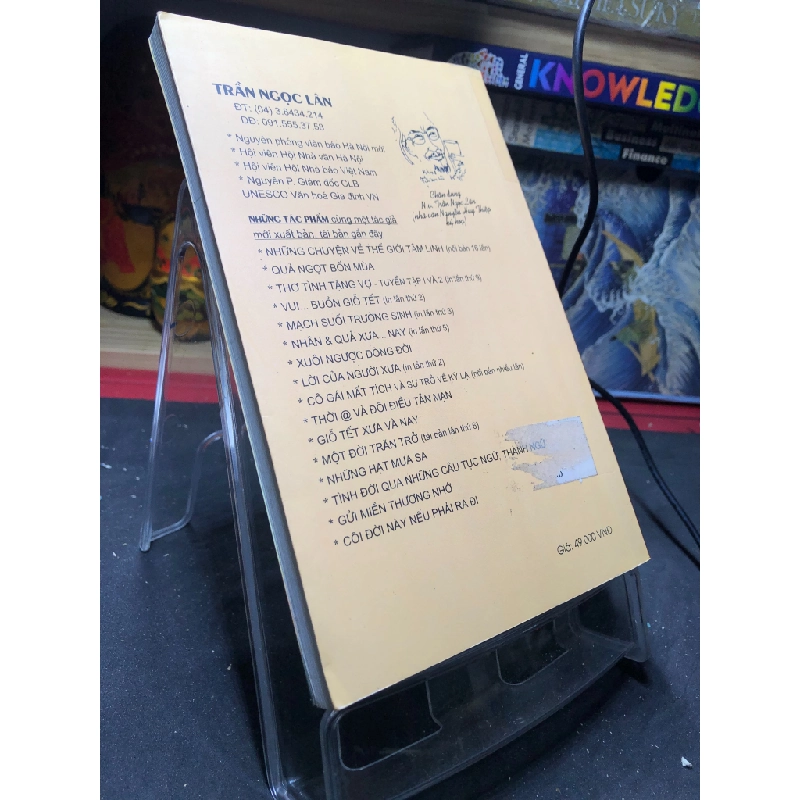 TRẦN NGỌC LÂN
ĐT: (04) 3.6434.214
DĐ: 091.555.37.53
* Nguyên phóng viên báo Hà Nội mới
* Hội viên Hội Nhà văn Hà Nội
* Hội viên Hội Nhà báo Việt Nam
* Nguyên P. Giám đốc CLB
UNESCO Văn hoá Gia đình VN
NHỮNG TÁC PHẨM cùng một tác giả
mới xuất bản, tái bản gần đây
* NHỮNG CHUYỆN VỀ THẾ GIỚI TÂM LINH
* QUẢ NGỌT BỐN MÙA
* THƠ TÌNH TẶNG VỢ - TUYỂN TẬP I VÀ 2 (in lần thứ 5)
* VUI... BUỒN GIỖ TẾT (in lần thứ 2)
* MẠCH SUỐI TRƯỜNG SINH (in lần thứ 3)
* NHÂN & QUẢ XƯA... NAY (in lần thứ 5)
* XUÔI NGƯỢC DÒNG ĐỜI
* LỜI CỦA NGƯỜI XƯA (in lần thứ 2)
* CÔ GÁI MẤT TÍCH VÀ SỰ TRỞ VỀ KỲ LẠ (tái bản nhiều lần)
* THỜI @ VÀ ĐÔI ĐIỀU TẢN MẠN
* GIỖ TẾT XƯA VÀ NAY
* MỘT ĐỜI TRĂN TRỞ
* NHỮNG HẠT MƯA SA
* TÌNH ĐỜI QUA NHỮNG CÂU TỤC NGỮ, THÀNH NGỮ
* GỬI MIỀN THƯƠNG NHỚ
* CÕI ĐỜI NÀY NẾU PHẢI RA ĐI
Giá: 49.000 VNĐ
Chân dung
GENERAL KNOWLED
Business
Finance